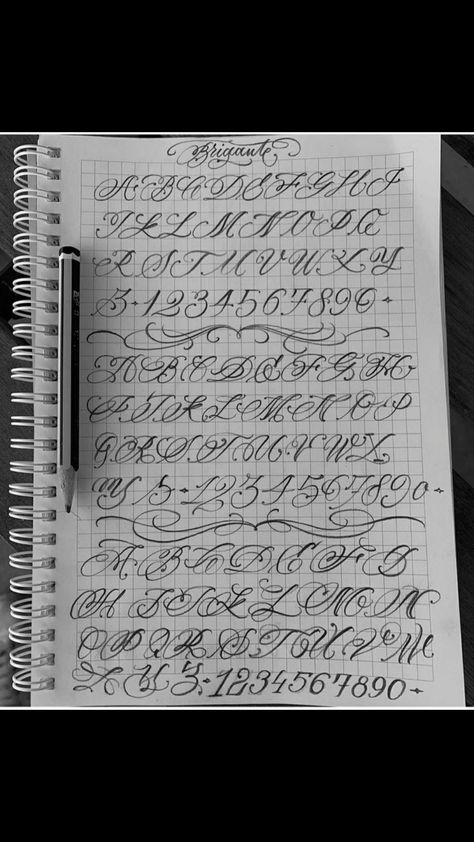 Brigante
A B C D E F G H I
J K L M N O P Q
R S T U V W X Y
Z · 1 2 3 4 5 6 7 8 9 0
A B C D E F G H
I J K L M N O P
Q R S T U V W X
Y Z · 1 2 3 4 5 6 7 8 9 0
A B C D E F G
H I J K L M N
O P Q R S T U V W
X Y Z · 1 2 3 4 5 6 7 8 9 0